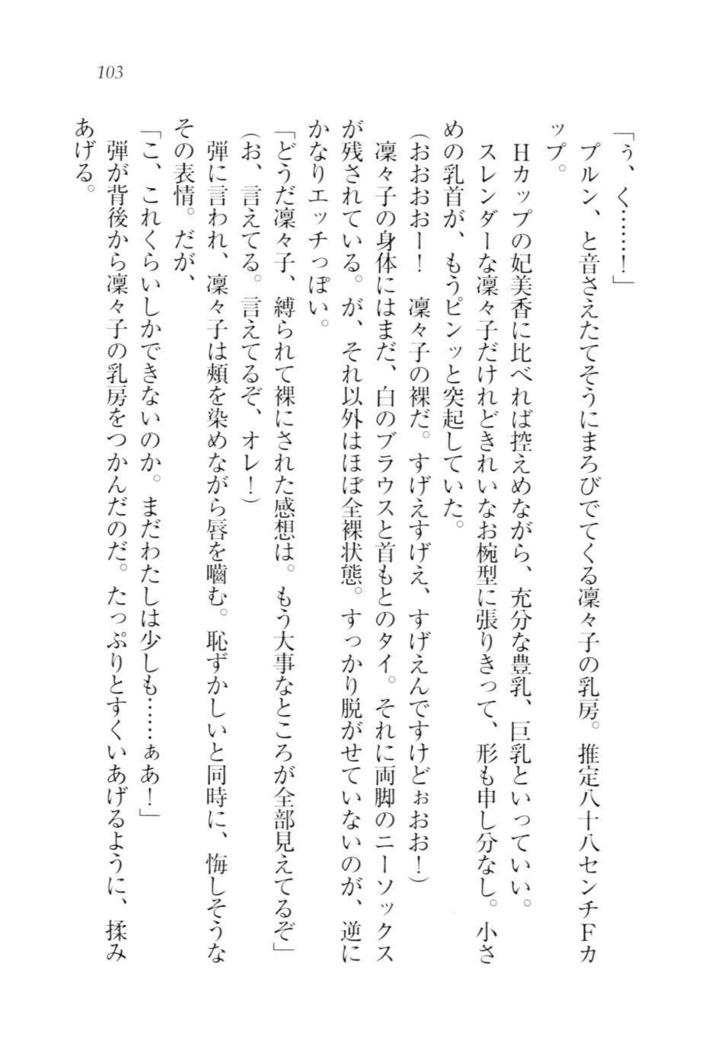 103
「ぅ、く……！」
プルン、と音さえたてそうにまろびでてくる凜々子の乳房。推定八十八センチFカ
ップ。
Hカップの妃美香に比べれば控えめながら、充分な豊乳、巨乳といっていい。
スレンダーな凜々子だけれどきれいなお椀型に張りきって、形も申し分なし。小さ
めの乳首が、もうピンッと突起していた。
（おおおおー！　凜々子の裸だ。すげえすげえ、すげえんですけどぉおお！）
凜々子の身体にはまだ、白のブラウスと首もとのタイ。それに両脚のニーソックス
が残されている。が、それ以外はほぼ全裸状態。すっかり脱がせていないのが、逆に
かなりエッチっぽい。
「どうだ凜々子、縛られて裸にされた感想は。もう大事なところが全部見えてるぞ」
（お、言えてる。言えてるぞ、オレ！）
弾に言われ、凜々子は頬を染めながら唇を嚙む。恥ずかしいと同時に、悔しそうな
その表情。だが、
「こ、これくらいしかできないのか。まだわたしは少しも……ぁあ！」
弾が背後から凜々子の乳房をつかんだのだ。たっぷりとすくいあげるように、揉み
あげる。